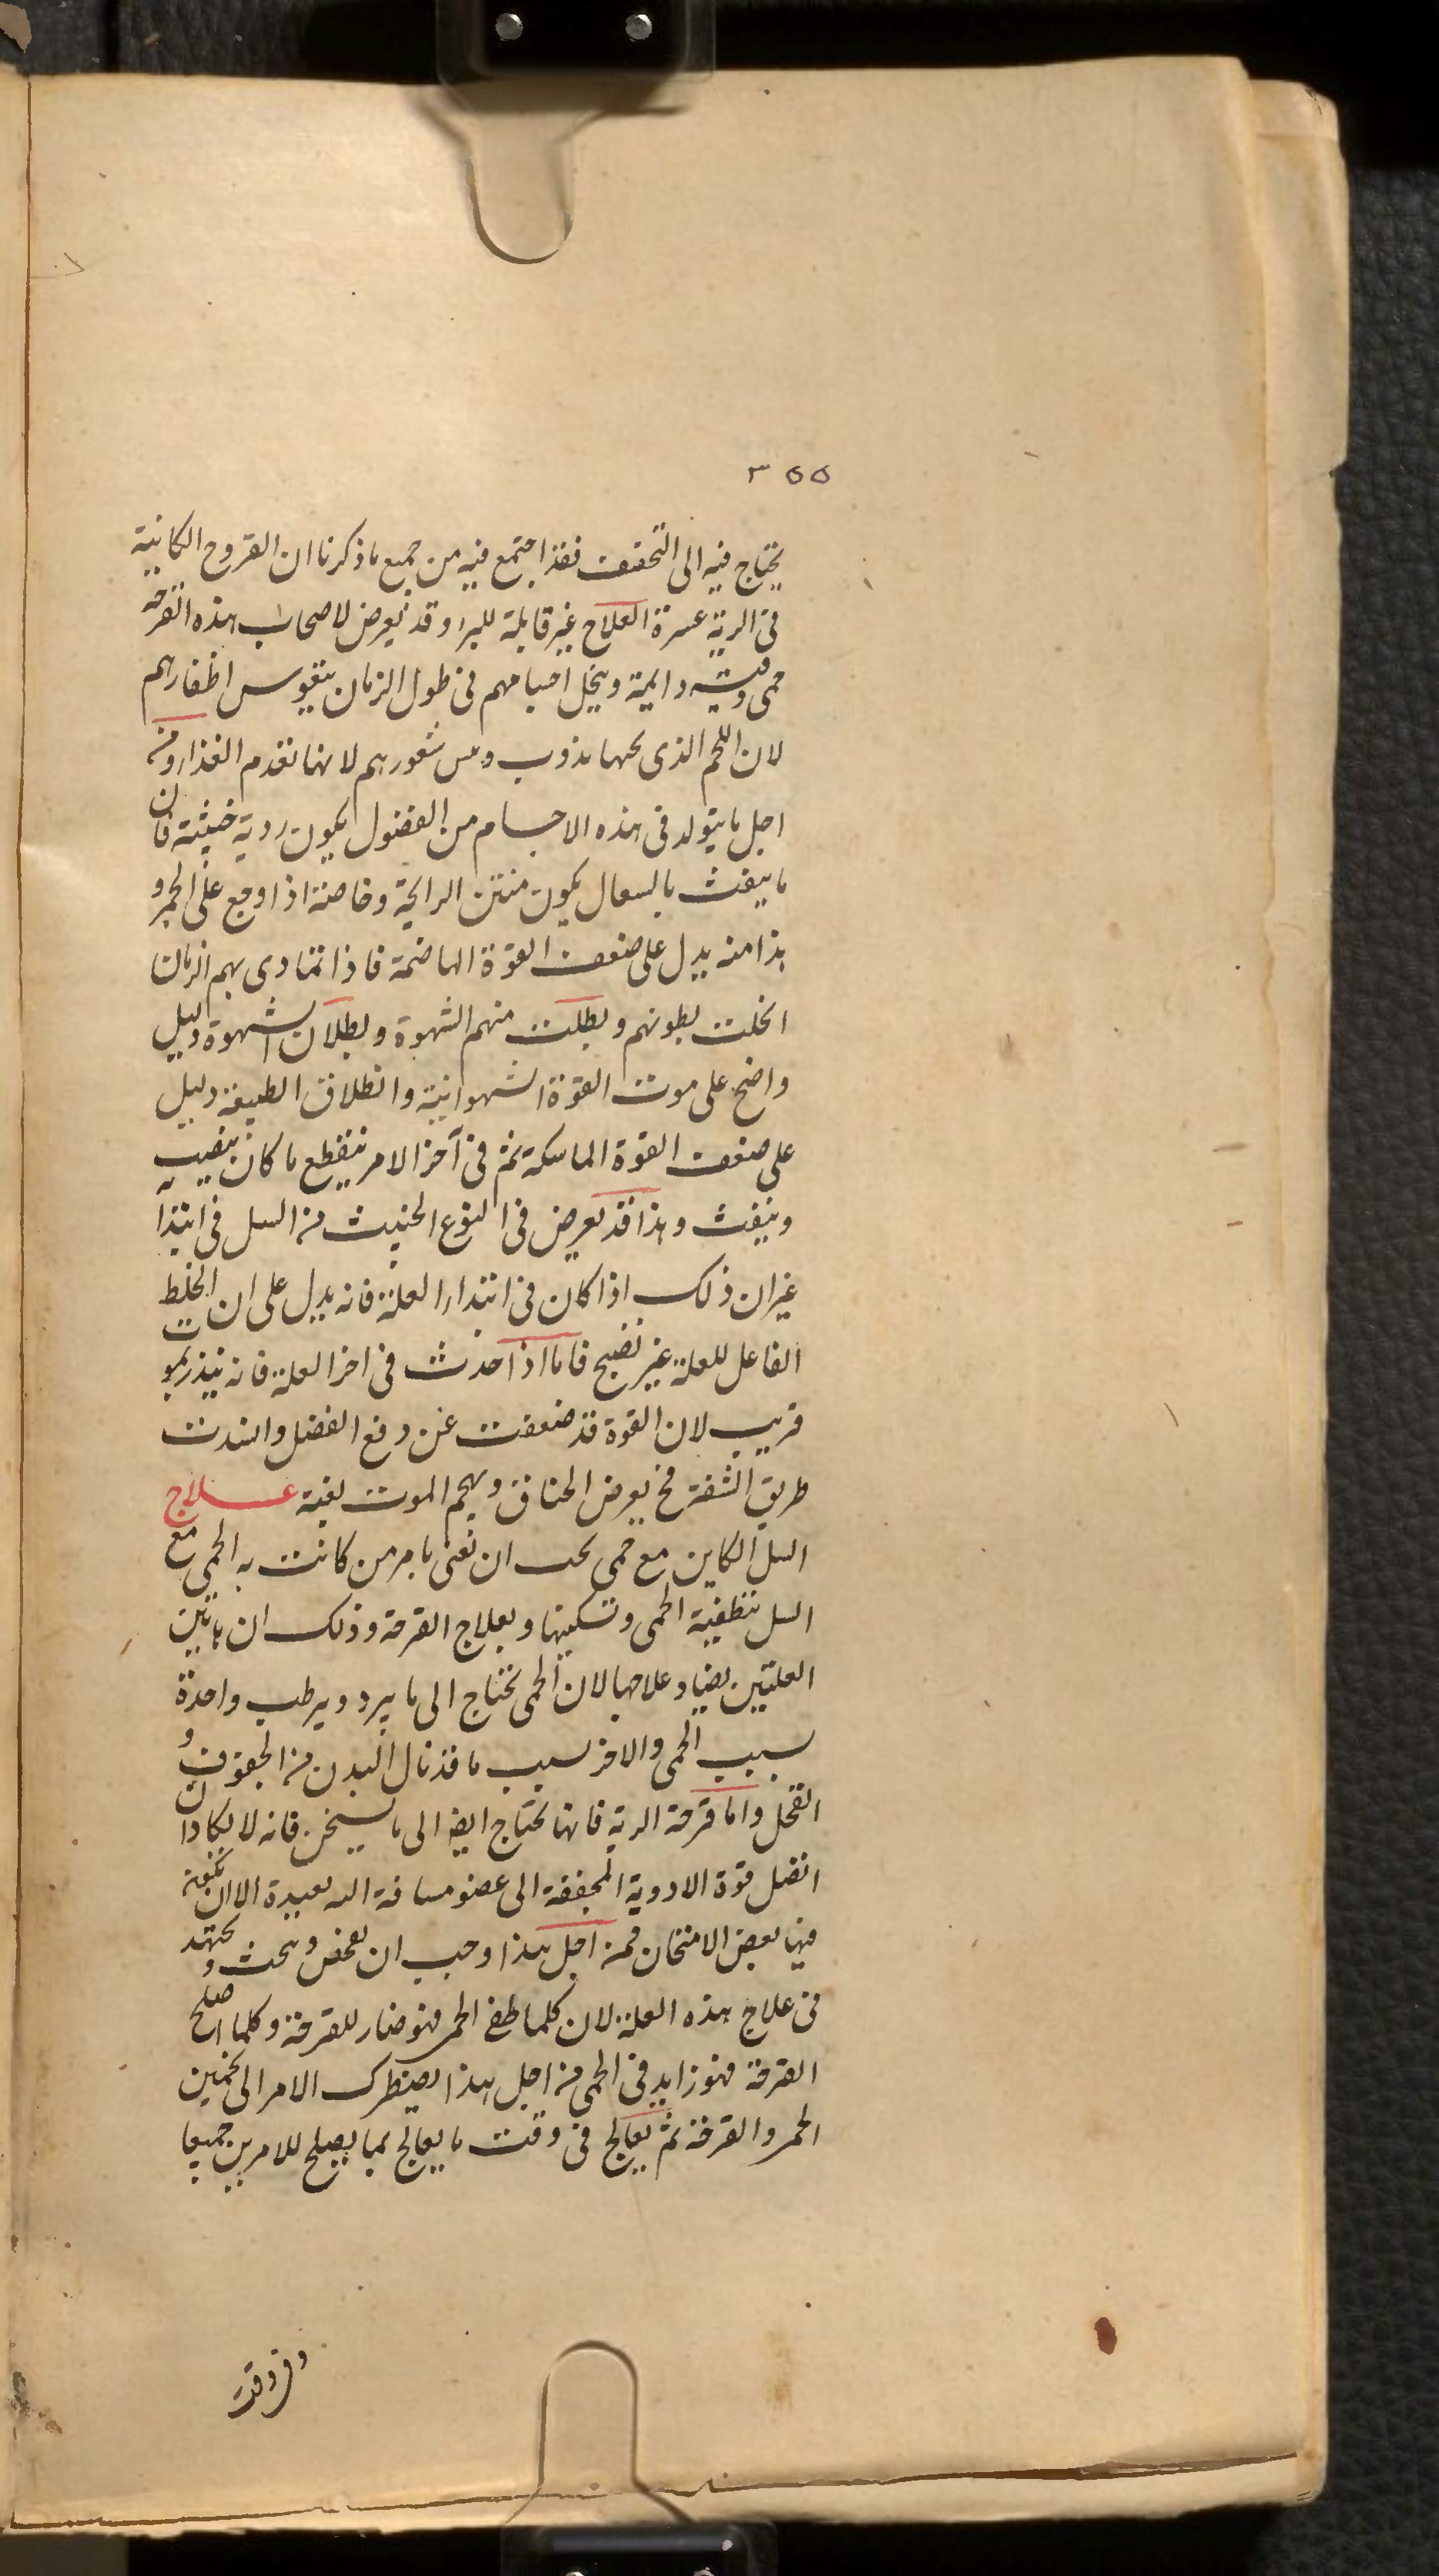 ٣٥٥
يحتاج فيه الى التخفيف فقد اجتمع فيه من جميع ما ذكرنا ان القروح الكاينة
فى الرية عسرة العلاج غير قابلة للبرا وقد يعرض لاصحاب هذه القرحة
حمى دقيه دايمة وينحل اجسامهم فى طول الزمان يتقوس اظفارهم
لان اللحم الذى تحتها يذوب و شعورهم لانها تقدم الغذا ومن
اجل ما يتولد فى هذه الاجسام من الفضول يكون ردية خبيثة فان
ما ينفث بالسعال يكون منتن الرايحة وخاصة اذا اوقع على الجمر و
هذا منه يدل على ضعف القوة الهاضمة فاذا تمادى بهم الزمان
انحلت بطونهم وبطلت منهم الشهوة وبطلان الشهوة دليل
واضح على موت القوة الشهوانية وانطلاق الطبيعة دليل
على ضعف القوة الماسكة ثم فى آخر الامر ينقطع ما كان
وينفث وهذا قد يعرض فى النوع الخبيث من السل فى ابتدا
غير ان ذلك اذا كان فى ابتدار العلة فانه يدل على ان الخلط
الفاعل للعلة غير نضيج فاما اذا حدث فى اخر العلة فانه ينذر بموت
قريب لان القوة قد ضعفت عن دفع الفضل وانسدت
طريق النفث فح يعرض الخناق ويهجم الموت بغتة علاج
السل الكاين مع حمى يجب ان تعنى بامر من كانت به الحمى مع
السل بتطفية الحمى وتسكينها وبعلاج القرحة وذلك ان هاتين
العلتين يضاد علاجها لان الحمى تحتاج الى ما يبرد ويرطب واحدة
سبب الحمى والاخر لسبب ما قد نال البدن من الجفوف و
القحل واما قرحة الرية فانها تحتاج ايضا الى ما يسخن فانه لا يكاد ان
اتصل قوة الادوية المجففة الى عضو مسافة اليه بعيدة الا ان
فيها بعض الاسخان فمن اجل هذا وجب ان يفحص ويبحث و يجتهد
فى علاج هذه العلة لان كلما طفى الحمى فهو ضار للقرحة وكلما اصلح
القرحة فهو زايد فى الحمى من اجل هذا يضطرك الامر الى تخمين
الحمى والقرحة ثم يعالج فى وقت ما يعالج بما يصلح للامرين جميعا
وفى وقت